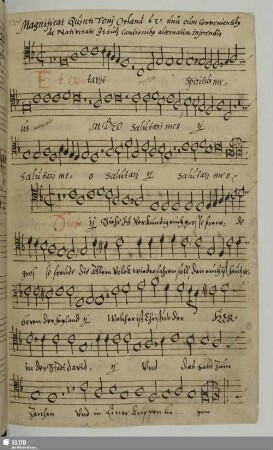 Magnificat Quinti Toni Orland 6 v. unà cum convenientib
de Nativitate Jesu Cantionib alternatim inserendis
Et exultavit Spiritus me-
us in DEO salutari meo ij
Salutari me- o salutari ij salutari meo.
ij Siehe ich verkündige euch gros- se freu- de
gros- se freude die allem Volck wiederfahren soll den euch ist heut ge-
boren der Heyland ij Welcher ist Christus der HERR.
in der Stadt David. ij Und das habt zum
Zeichen Und in einer Krippen li- gen
SLUB